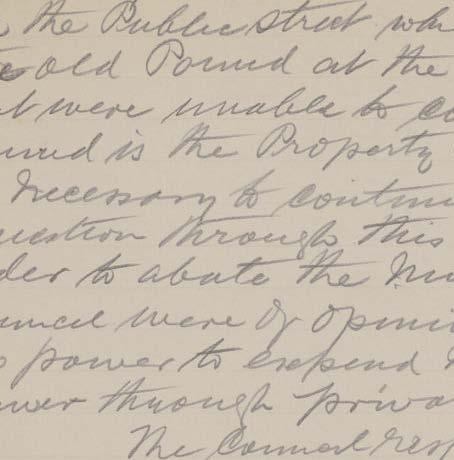 the Public street wh
old Pound at the
t were unable to co
und is the Property
necessary to continu
uestion through this
der to abate the Nui
uncil were of opini
power to expend
wer through priva
The Council resp